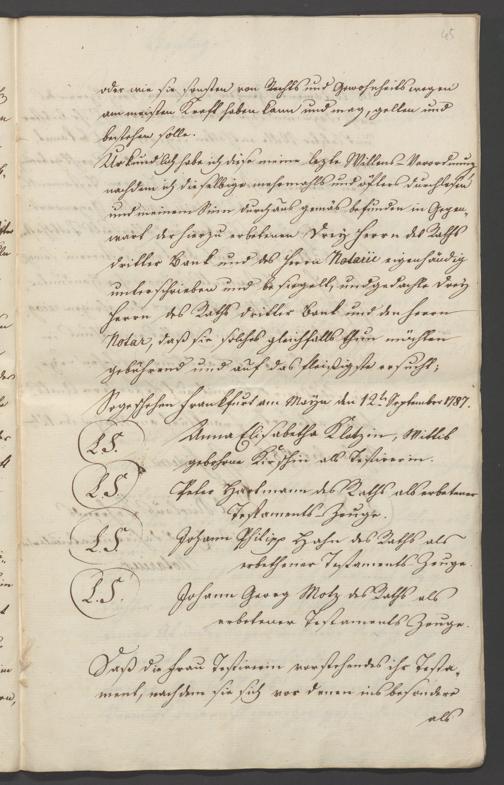 45
oder wie sie sonsten von Rechts und Gewohnheits wegen
am meisten Kraft haben kann und mag, gelten und
bestehen solle.
Urkundlich habe ich diese meine lezte Willens-Verordnung
nachdem ich dieselbige mehrmahls und öfters durchlesen
und meinem Sinn durchaus gemäs befunden in Gegen-
wart der hierzu erbetenen Drey Herren des Raths
dritter Bank und des Herrn Notarii eigenhändig
unterschrieben und besiegelt, und gedachte drey
Herren des Raths dritter Bank und den Herrn
Notar, daß sie solches gleichfalls thun möchten
gebührend und auf das fleißigste ersucht;
So geschehen Frankfurt am Mayn den 12.t September 1787.
L.S. Anna Elisabetha Klotzin, Wittib
gebohrne als Testirerin.
L.S. Peter Hartmann des Raths als erbetener
Testaments-Zeuge.
L.S. Johann Philipp Hahn des Raths als
erbethener Testaments Zeuge.
L.S. Johann Georg Motz des Raths als
erbetener Testaments Zeuge.
Daß die Frau Testirerin vorstehendes ihr Testa-
ment, nachdem sie sich vor denen ins besondere
als